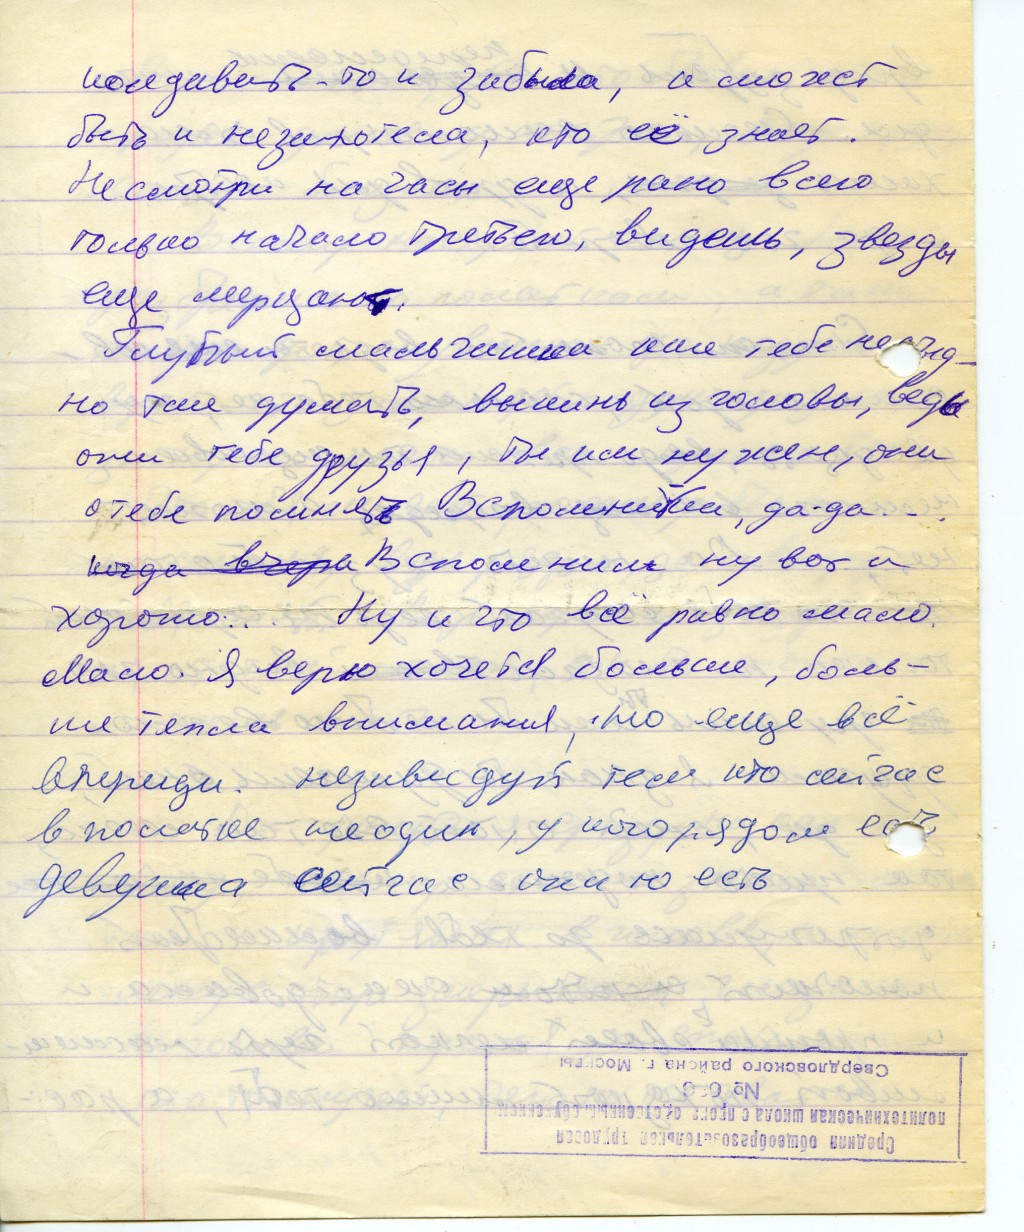 колдавать-то и забыла, а может
быть и незахотела, кто её знает.
Несмотри на часы еще рано всего
только начало третьего, видешь, звезды
еще мерцают.
Глупый мальчишка как тебе нестыд-
но так думать, выкинь из головы, ведь
они тебе друзья, ты им нужен, они
о тебе помнят Вспомнил, да-да...
когда вчера Вспомнил ну вот и
хорошо... Ну и что всё равно мало.
Мало. Я верю хочется больше, боль-
ше тепла внимания, но еще всё
впериди. незавидуй тем кто сейчас
в палатке неодин, у кого рядом есть
девушка сейчас они ю есть
Средняя общеобразовательная трудовая
политехническая школа с произ одственным обучением
№
Свердловского района г. Москвы